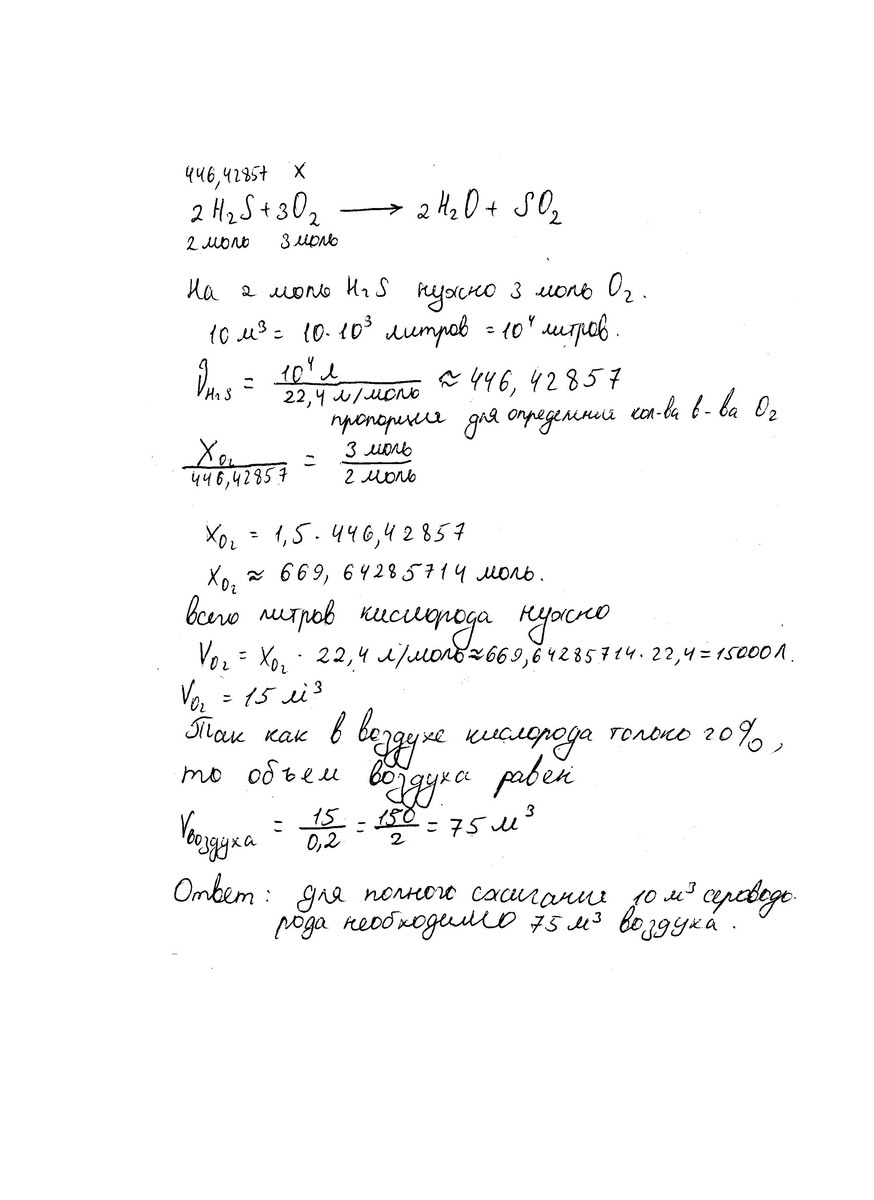 446,42857 X
2H₂S + 3O₂ ⟶ 2H₂O + SO₂
2 моль 3 моль
На 2 моль H₂S нужно 3 моль O₂.
10 м³ = 10·10³ литров = 10⁴ литров.
ν_H₂S = 10⁴ л / 22,4 л/моль ≈ 446,42857
пропорция для определения кол-ва в-ва O₂
X_O₂ / 446,42857 = 3 моль / 2 моль
X_O₂ = 1,5 · 446,42857
X_O₂ ≈ 669,64285714 моль.
всего литров кислорода нужно
V_O₂ = X_O₂ · 22,4 л/моль ≈ 669,64285714 · 22,4 = 15000 л.
V_O₂ = 15 м³
Так как в воздухе кислорода только 20%,
то объем воздуха равен
V_воздуха = 15 / 0,2 = 150 / 2 = 75 м³
Ответ: для полного сжигания 10 м³ сероводо-
рода необходимо 75 м³ воздуха.